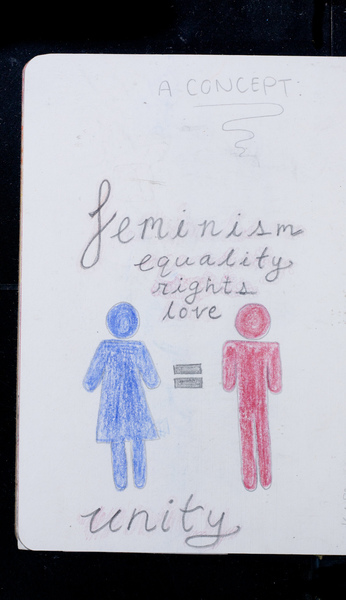 A CONCEPT:
feminism
equality
rights
love
=
unity